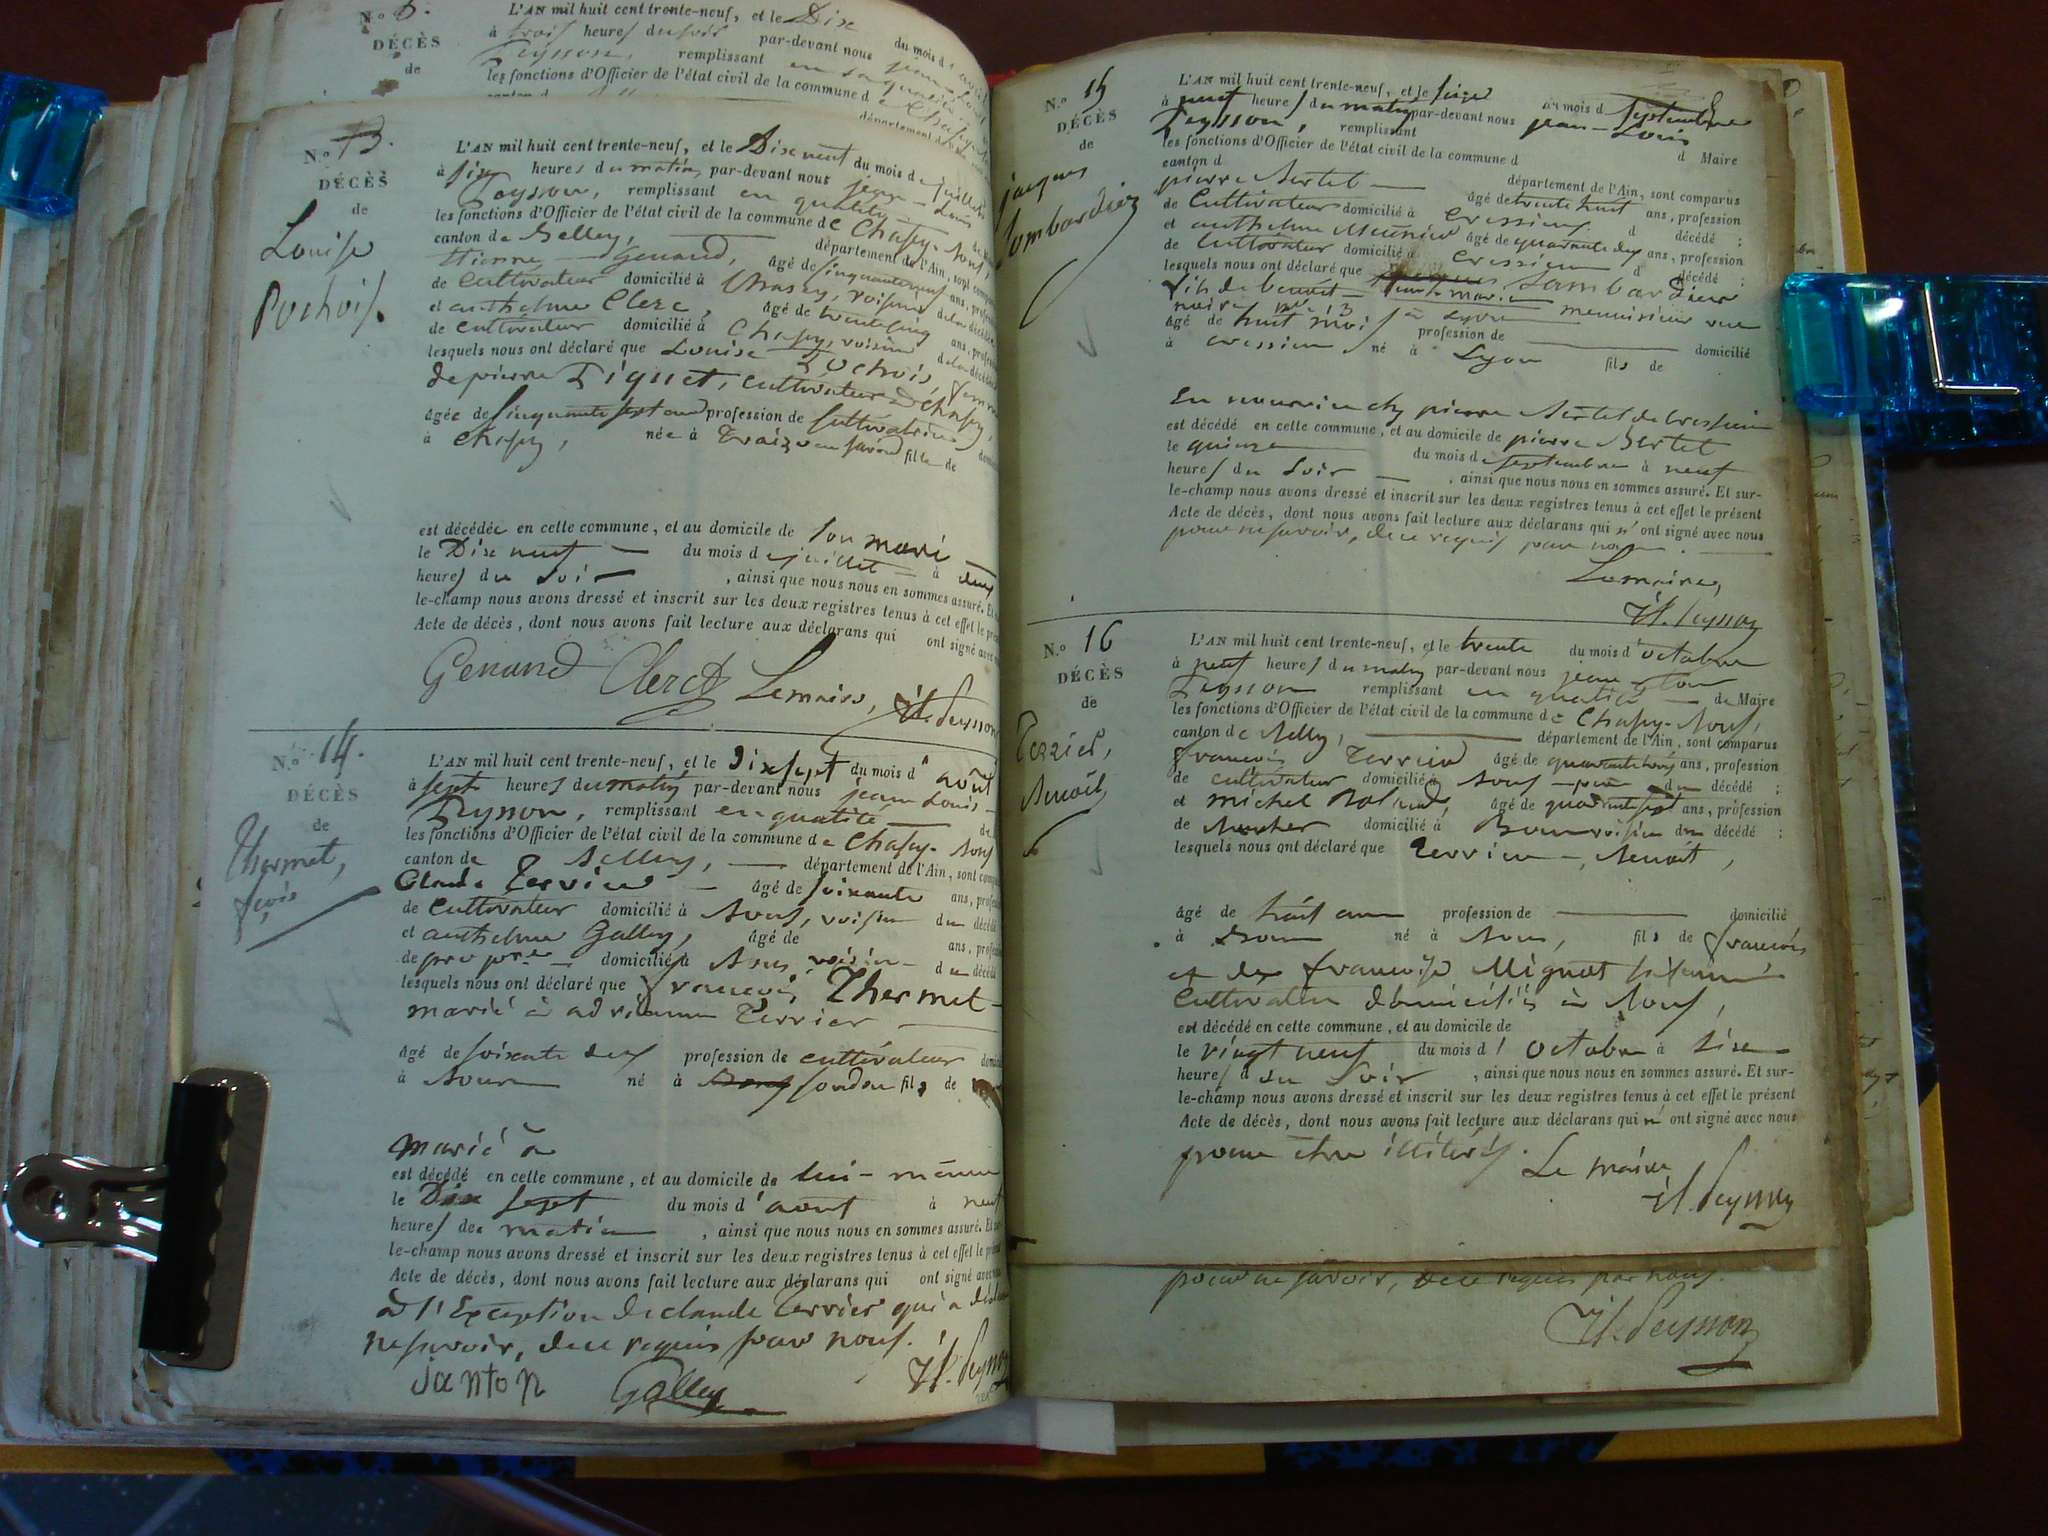 N.º 6.
DÉCÈS
de
L'AN mil huit cent trente-neuf, et le Dix
à trois heures du soir par-devant nous
Peysson, remplissant
les fonctions d'Officier de l'état civil de la commune d
N.º 13.
DÉCÈS
de
Louise
Pochois.
L'AN mil huit cent trente-neuf, et le Dix neuf du mois de juillet
à six heures du matin, par-devant nous jean-Louis
Peysson, remplissant en qualité
les fonctions d'Officier de l'état civil de la commune de Chazey-Bons,
canton de Belley, département de l'Ain, sont
Etienne Genand, âgé de cinquante neuf ans,
de Cultivateur domicilié à voisin de la décédée
et anthelme Clerc, âgé de trente cinq ans,
de cultivateur domicilié à Chazey, voisin de la décédée
lesquels nous ont déclaré que Louise Pochois, femme
de pierre Piquet, cultivateur à Chazey,
âgée de cinquante sept ans profession de Cultivatrice
à Chazey, née à Traize en savoie fille de
est décédée en cette commune, et au domicile de son mari
le Dix neuf du mois de juillet à deux
heures du soir, ainsi que nous nous en sommes assuré. Et
le-champ nous avons dressé et inscrit sur les deux registres tenus à cet effet le
Acte de décès, dont nous avons fait lecture aux déclarans qui ont signé avec
Genand Clerc Le maire, JL. Peysson
N.º 14.
DÉCÈS
de
Thermet,
fçois
L'AN mil huit cent trente-neuf, et le Dix sept du mois d'août
à sept heures du matin par-devant nous jean Louis
Peysson, remplissant en qualité de
les fonctions d'Officier de l'état civil de la commune de Chazey-Bons
canton de Belley, département de l'Ain, sont
Claude Terrier âgé de soixante ans,
de Cultivateur domicilié à Bons, voisin du décédé
et anthelme Galley, âgé de ans,
de propre domicilié à Bons, voisin du décédé
lesquels nous ont déclaré que françois Thermet
marié à adrienne Terrier
âgé de soixante deux profession de cultivateur
à Bons né à fils de
marié à
est décédé en cette commune, et au domicile de lui-même
le Dix Sept du mois d'aout à neuf
heures de matin, ainsi que nous nous en sommes assuré. Et
le-champ nous avons dressé et inscrit sur les deux registres tenus à cet effet le
Acte de décès, dont nous avons fait lecture aux déclarans qui ont signé avec
à l'Exception de claude Terrier qui a
ne savoir, de ce requis par nous.
janton Galley JL. Peysson
N.º 15
DÉCÈS
de
jacques
Lombardier
L'AN mil huit cent trente-neuf, et le seize du mois d septembre
à neuf heures du matin par-devant nous jean-Louis
Peysson, remplissant d Maire
les fonctions d'Officier de l'état civil de la commune d
canton d département de l'Ain, sont comparus
pierre Bertet âgé de trente huit ans, profession
de Cultivateur domicilié à Cressieu d décédé ;
et anthelme Meunier âgé de quarante deux ans, profession
de Cultivateur domicilié à Cressieu d décédé ;
lesquels nous ont déclaré que Lombardier
fils de benoit menuisier rue
noire n.º 3 à Lyon
âgé de huit mois profession de domicilié
à cressieu né à Lyon fils de
En nourrice chez pierre Bertet de Cressieu
est décédé en cette commune, et au domicile de pierre Bertet
le quinze du mois de septembre à neuf
heures du soir, ainsi que nous nous en sommes assuré. Et sur-
le-champ nous avons dressé et inscrit sur les deux registres tenus à cet effet le présent
Acte de décès, dont nous avons fait lecture aux déclarans qui n'ont signé avec nous
pour ne savoir, de ce requis par nous.
Le maire,
JL. Peysson
N.º 16
DÉCÈS
de
Terrier,
Benoit
L'AN mil huit cent trente-neuf, et le trente du mois d'octobre
à neuf heures du matin par-devant nous jean-Louis
Peysson remplissant en qualité de Maire
les fonctions d'Officier de l'état civil de la commune de Chazey-Bons,
canton de Belley, département de l'Ain, sont comparus
françois Terrier âgé de quarante trois ans, profession
de cultivateur domicilié à Bons père du décédé ;
et michel Roland, âgé de quarante sept ans, profession
de domicilié à Bons voisin du décédé ;
lesquels nous ont déclaré que Terrier, Benoit,
âgé de trois ans profession de domicilié
à Bons né à Bons, fils de françois
et de françoise Mignot sa femme
Cultivateurs domiciliés à Bons,
est décédé en cette commune, et au domicile de
le vingt neuf du mois d'octobre à dix
heures d du soir, ainsi que nous nous en sommes assuré. Et sur-
le-champ nous avons dressé et inscrit sur les deux registres tenus à cet effet le présent
Acte de décès, dont nous avons fait lecture aux déclarans qui n'ont signé avec nous
pour être illitérés.
Le maire
JL. Peysson
pour ne savoir, de ce requis par nous.
JL. Peysson